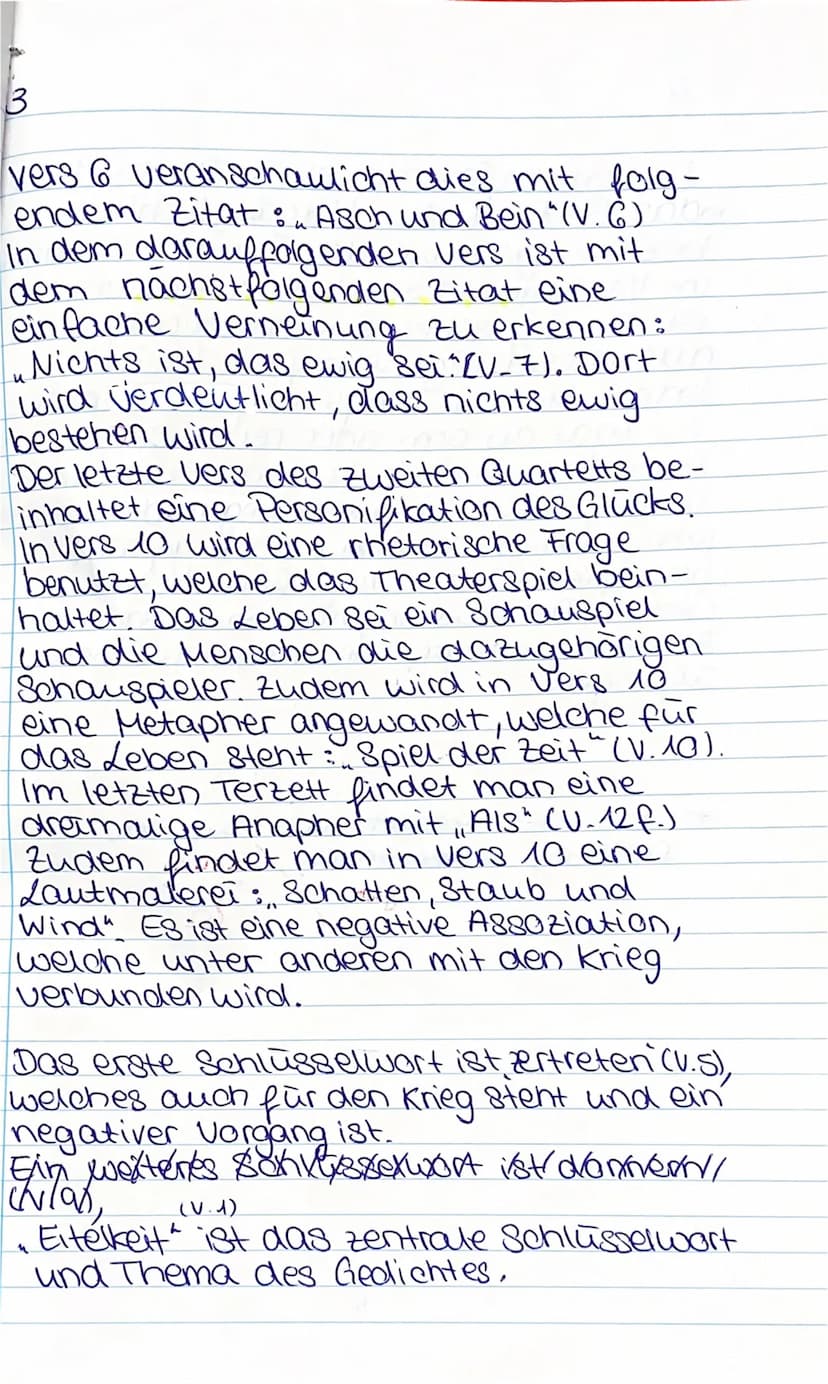 3
Vers 6 veranschaulicht dies mit folg-
endem Zitat: „Asch und Bein" (V. 6)
In dem darauffolgenden Vers ist mit
dem nächstfolgenden Zitat eine
einfache Verneinung zu erkennen:
„Nichts ist, das ewig sei." (V. 7). Dort
wird verdeutlicht, dass nichts ewig
bestehen wird.
Der letzte Vers des zweiten Quartetts be-
inhaltet eine Personifikation des Glücks.
In Vers 10 wird eine rhetorische Frage
benutzt, welche das Theaterspiel bein-
haltet. Das Leben sei ein Schauspiel
und die Menschen die dazugehörigen
Schauspieler. Zudem wird in Vers 10
eine Metapher angewandt, welche für
das Leben steht: „Spiel der Zeit" (V. 10).
Im letzten Terzett findet man eine
dreimalige Anapher mit „Als" (V. 12 f.)
Zudem findet man in Vers 10 eine
Lautmalerei: „Schatten, Staub und
Wind". Es ist eine negative Assoziation,
welche unter anderen mit den Krieg
verbunden wird.
Das erste Schlüsselwort ist „zertreten" (V. 5),
welches auch für den Krieg steht und ein
negativer Vorgang ist.
Ein weiteres Schlüsselwort ist donnern
(V. 1)
„Eitelkeit" ist das zentrale Schlüsselwort
und Thema des Gedichtes.